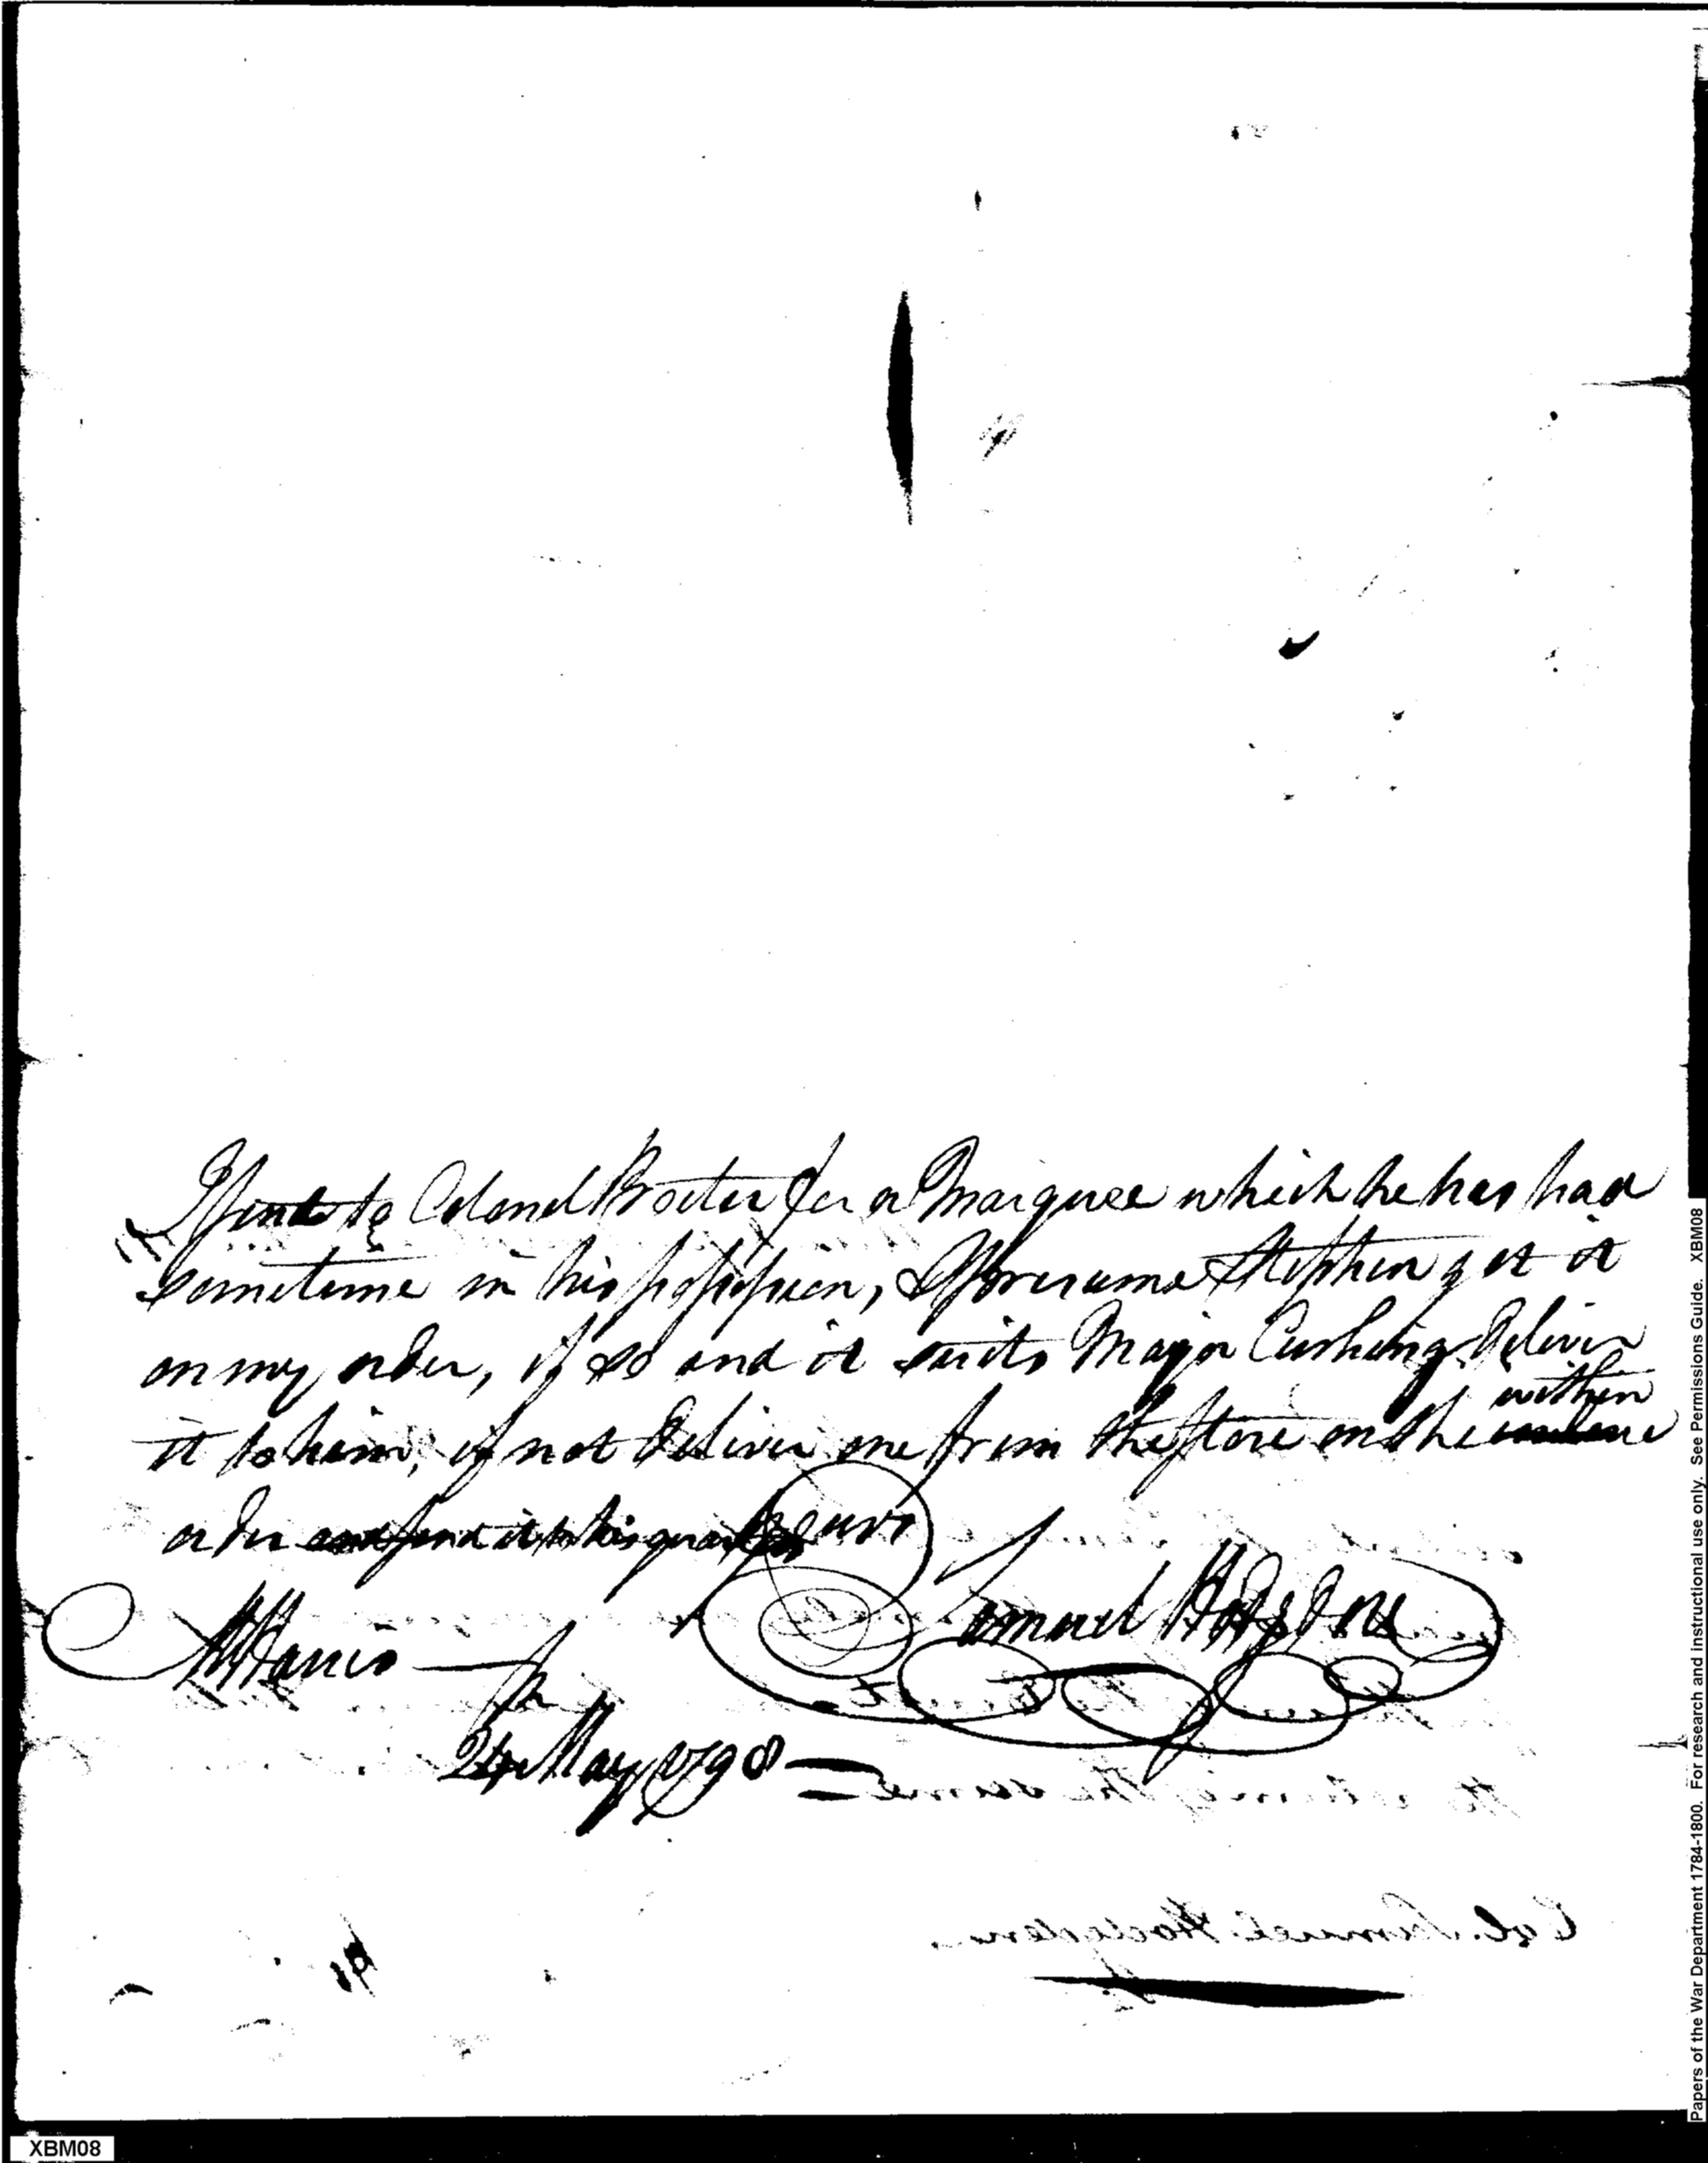 I sent to Colonel Procter for a Marquee which he has had
sometime in his possession, I presume Stephen got it
on my order, if so and it suits Major Cushing deliver
it to him, if not deliver one from the store on the within
order and send it to his quarters
yours
Samuel Hodgdon
H Harris
24 May 1798
Col. Samuel Hodgdon.
XBM08
Papers of the War Department 1784-1800. For research and instructional use only. See Permissions Guide. XBM08